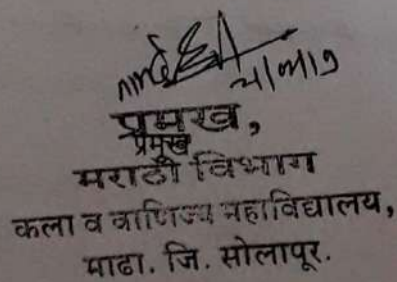 प्रमुख,
प्रमुख
मराठी विभाग
कला व वाणिज्य महाविद्यालय,
माढा. जि. सोलापूर.